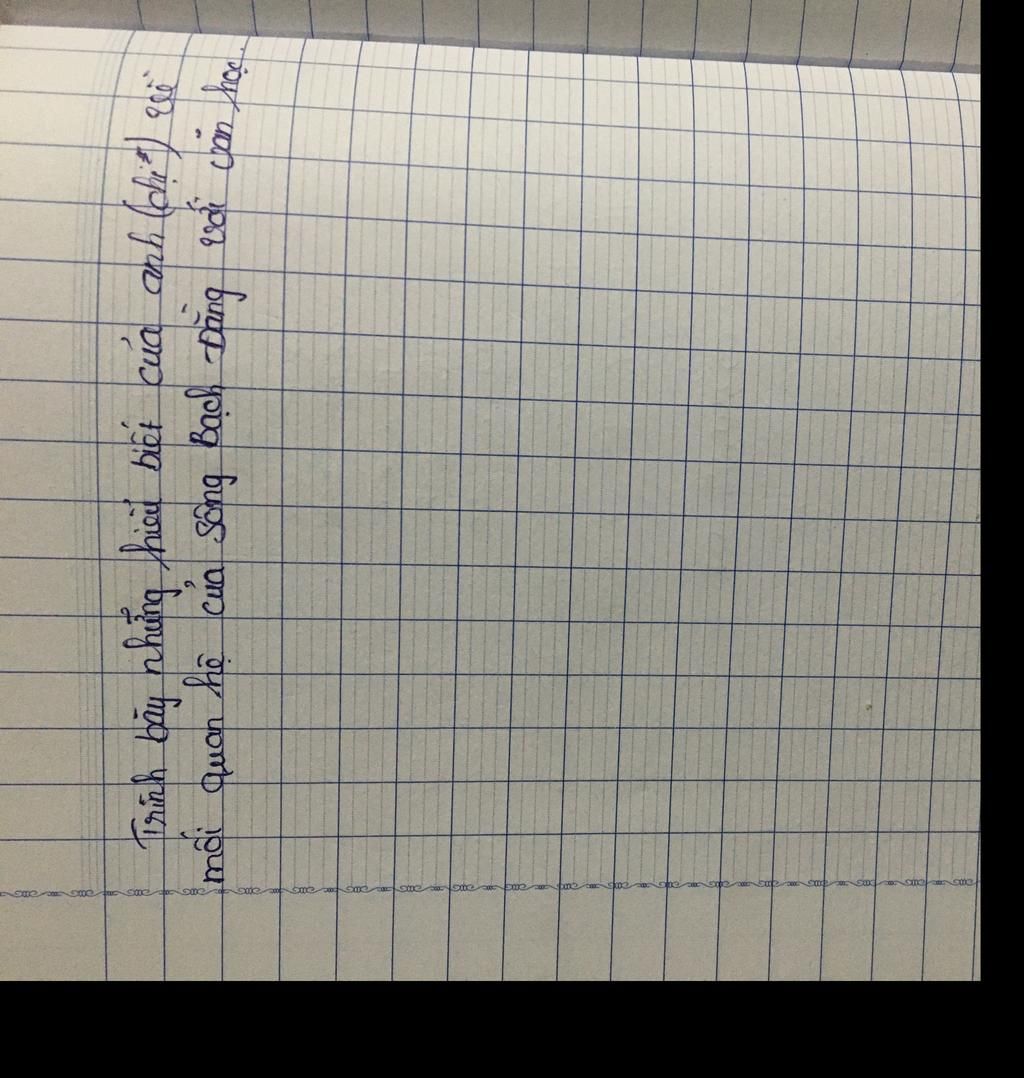 Trình bày những hiểu biết của anh (chị) về
mối quan hệ của sông Bạch Đằng với văn học.